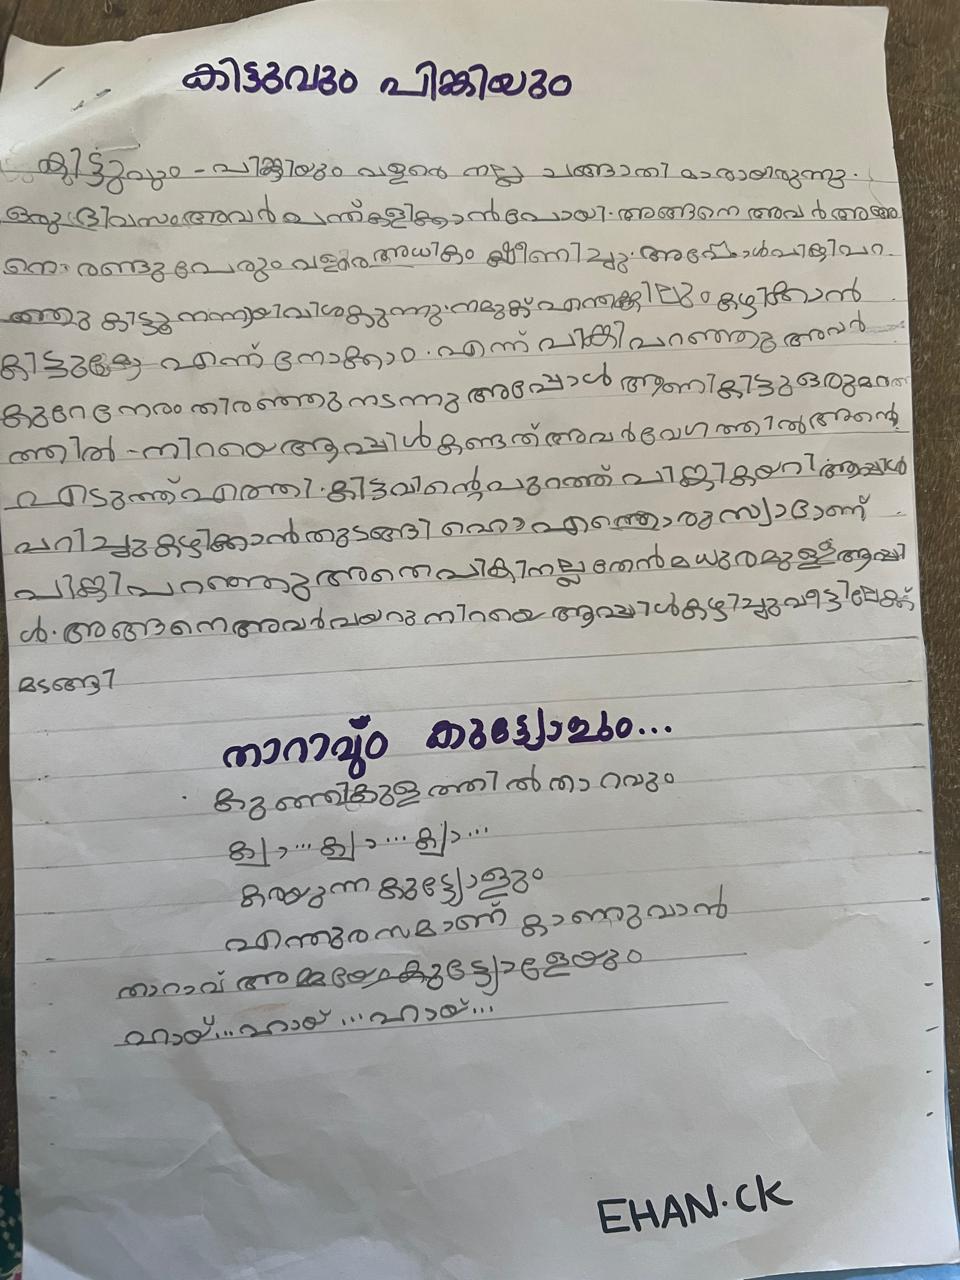 കിട്ടുവും പിങ്കിയും
കിട്ടുവും - പിങ്കിയും വളരെ നല്ല ചങ്ങാതി മാരായിരുന്നു.
ഒരു ദിവസം അവർ പന്ത് കളിക്കാൻ പോയി. അങ്ങനെ അവർ
രണ്ടു പേരും വളരെ അധികം ക്ഷീണിച്ചു. അപ്പോൾ പിങ്കി പറ
ഞ്ഞു കിട്ടു നന്നായി വിശക്കുന്നു. നമുക്ക് എന്തെങ്കിലും കഴിക്കാൻ
കിട്ടുമോ എന്ന് നോക്കാം. എന്ന് പിങ്കി പറഞ്ഞു അവർ
കുറേ നേരം തിരഞ്ഞു നടന്നു അപ്പോൾ ആണ് കിട്ടു ഒരു മര
ത്തിൽ - നിറയെ ആപ്പിൾ കണ്ടത് അവർ വേഗത്തിൽ അതെ
എടുത്ത് എത്തി. കിട്ടുവിന്റെ പുറത്ത് പിങ്കി കയറി ആപ്പിൾ
പറിച്ചു കഴിക്കാൻ തുടങ്ങി ഹൊ എന്തൊരു സ്വാദാണ്
പിങ്കി പറഞ്ഞു അതെ പിങ്കി നല്ല തേൻ മധുരമുള്ള ആപ്പി
ൾ. അങ്ങനെ അവർ വയറു നിറയെ ആപ്പിൾ കഴിച്ചു വീട്ടിലേക്ക്
മടങ്ങി
താറാവും കുട്ട്യോളും...
കുഞ്ഞികുളത്തിൽ താറവും
ക്വാ... ക്വാ... ക്വാ...
കരയുന്ന കുട്ട്യോളും
എന്തുരസമാണ് കാണുവാൻ
താറാവ് അമ്മയേം കുട്ട്യോളേയും
ഹായ്... ഹായ് ... ഹായ്...
EHAN.CK